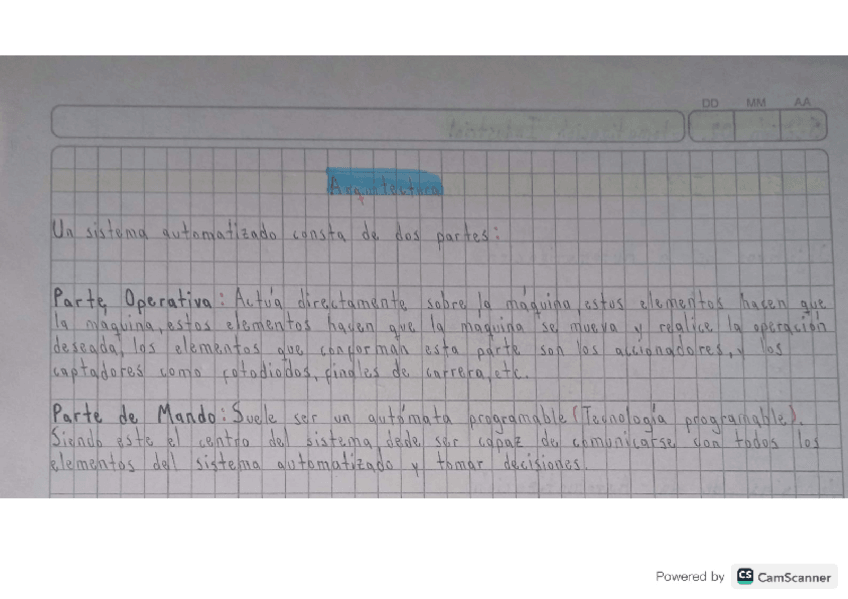 DD MM AA
Arquitectura
Un sistema automatizado consta de dos partes:
Parte Operativa: Actúa directamente sobre la máquina, estos elementos hacen que
la maquina, estos elementos hacen que la maquina se mueva y realice la operación
deseada, los elementos que conforman esta parte son los accionadores, y los
captadores como fotodiodos, finales de carrera, etc.
Parte de Mando: Suele ser un autómata programable (Tecnología programable).
Siendo este el centro del sistema dede ser capaz de comunicarse con todos los
elementos del sistema automatizado y tomar decisiones.
Powered by CS CamScanner